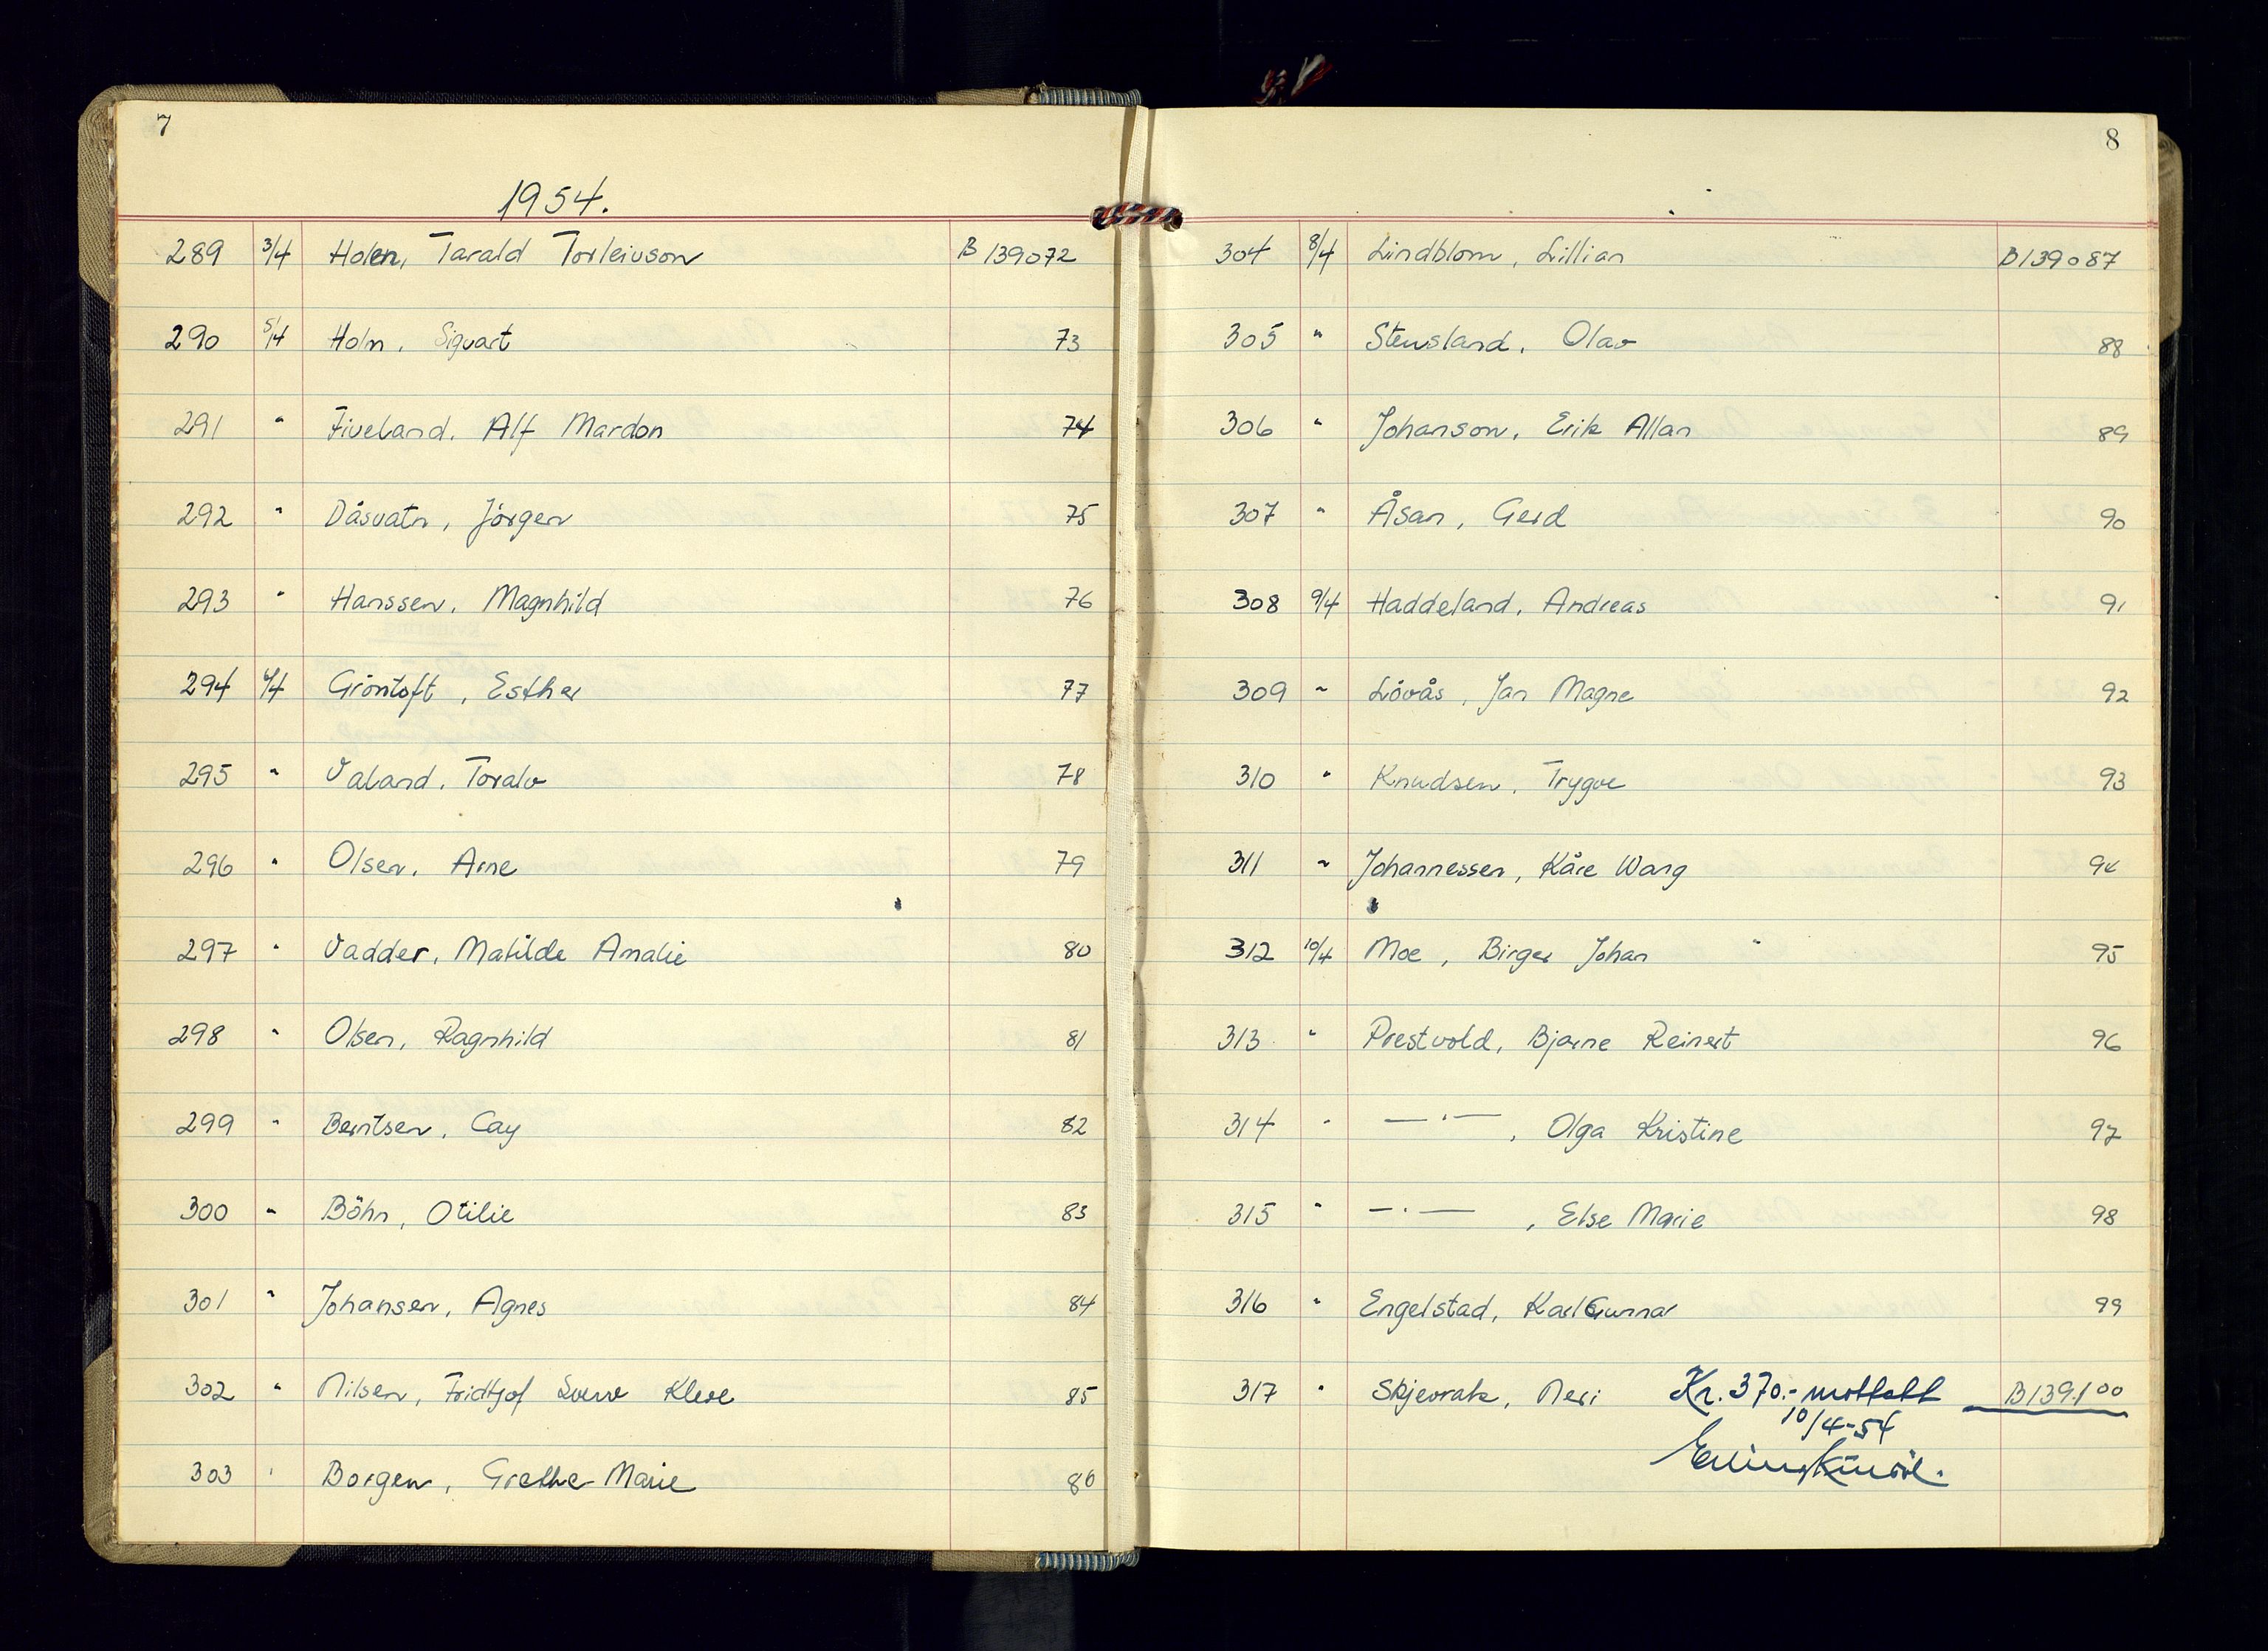 7
1954.
289 3/4 Holen, Tarald Torleivson B 139072
290 5/4 Holm, Sigvart 73
291 " Fiveland, Alf Mardon 74
292 " Dåsvatn, Jörgen 75
293 " Hanssen, Magnhild 76
294 /4 Gröntoft, Esther 77
295 " Valand, Toralv 78
296 " Olsen, Arne 79
297 " Vadder, Matilde Amalie 80
298 " Olsen, Ragnhild 81
299 " Berntsen, Cay 82
300 " Böhn, Otilie 83
301 " Johansen, Agnes 84
302 " Nilsen, Fridtjof Kleve 85
303 " Borgen, Grethe Marie 86
8
304 8/4 Lindblom, Lillian B139087
305 " Stensland, Olav 88
306 " Johanson, Erik Allan 89
307 " Åsan, Gerd 90
308 9/4 Haddeland, Andreas 91
309 " Lövås, Jan Magne 92
310 " Knudsen, Trygve 93
311 " Johannessen, Kåre Wang 94
312 10/4 Moe, Birger Johan 95
313 " Prestvold, Bjarne Reinert 96
314 " — " — , Olga Kristine 97
315 " — " — , Else Marie 98
316 " Engelstad, Karl Gunnar 99
317 " Skjevrak, Neri Kr. 370.- mottatt B139100
10/4-54